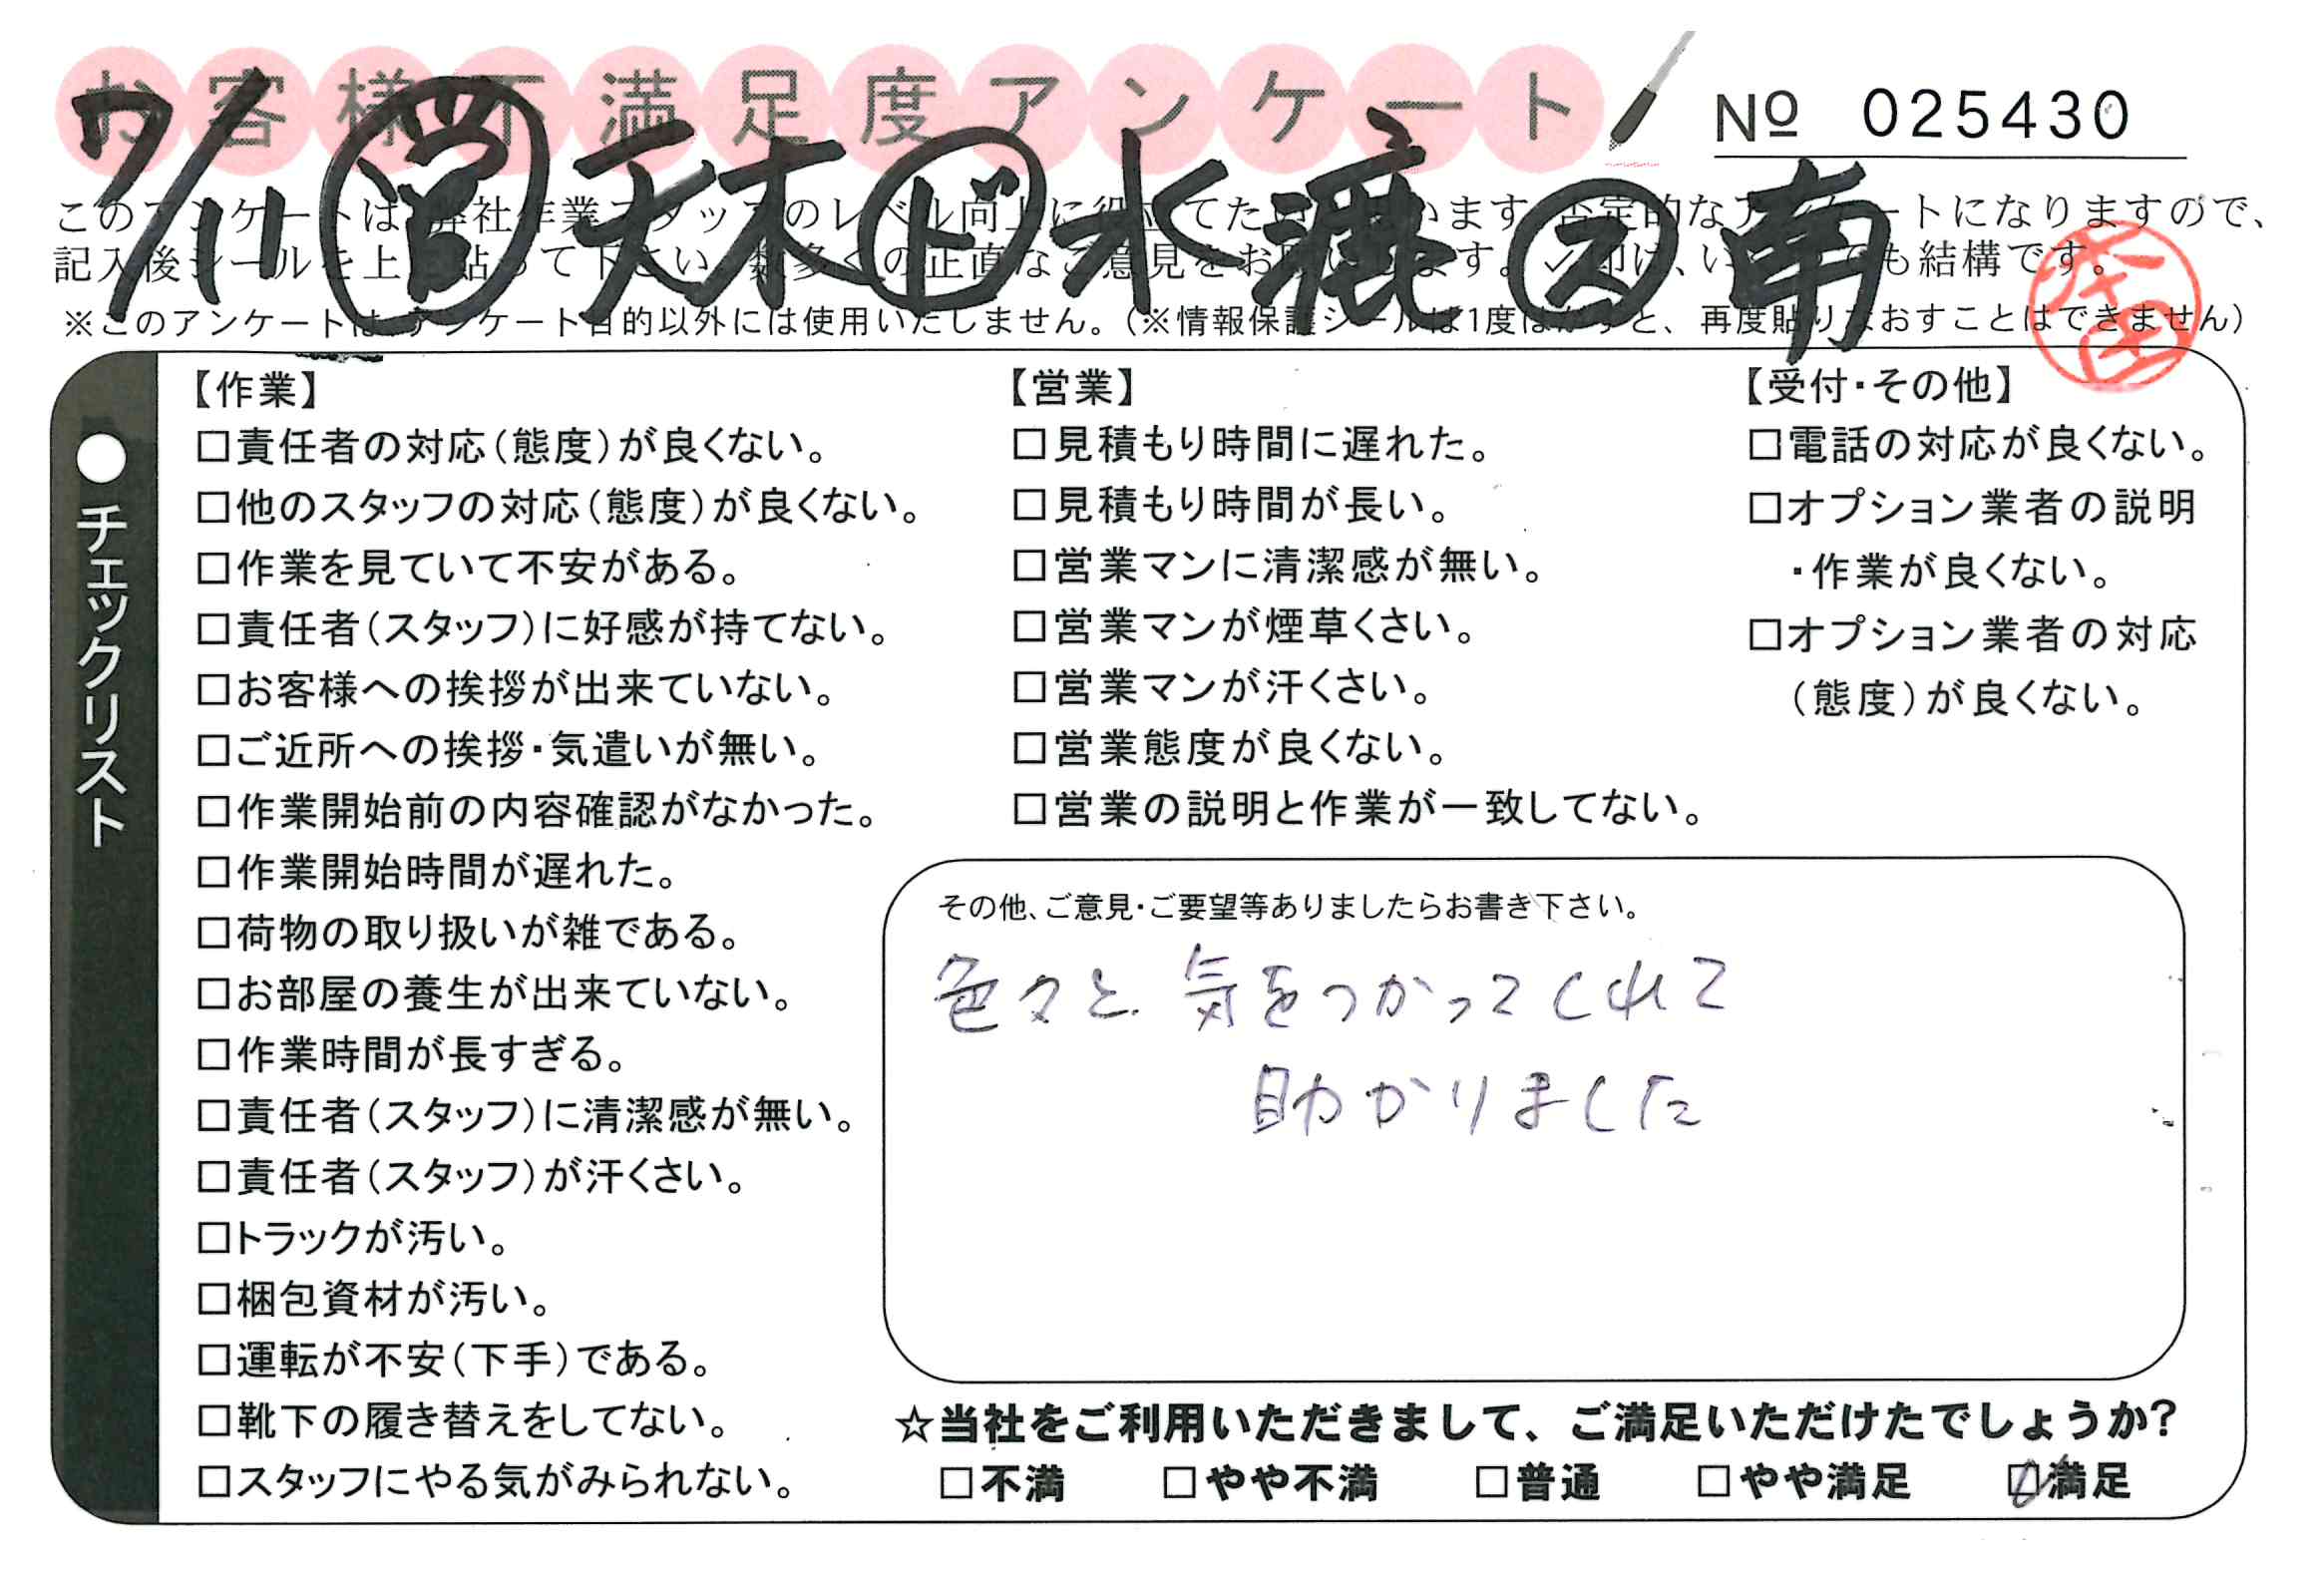 お客様不満足度アンケート
Nº 025430
7/11 営 天木 ド 水漉 ス 南
このアンケートは、弊社作業スタッフのレベル向上に役立てたいと思います。否定的なアンケートになりますので、
記入後シールを上に貼って下さい。数多くの正直なご意見をお願いします。✓印は、いくつでも結構です。
※このアンケートは、アンケート目的以外には使用いたしません。（※情報保護シールは1度はがすと、再度貼りなおすことはできません）
本田
●チェックリスト
【作業】
□責任者の対応（態度）が良くない。
□他のスタッフの対応（態度）が良くない。
□作業を見ていて不安がある。
□責任者（スタッフ）に好感が持てない。
□お客様への挨拶が出来ていない。
□ご近所への挨拶・気遣いが無い。
□作業開始前の内容確認がなかった。
□作業開始時間が遅れた。
□荷物の取り扱いが雑である。
□お部屋の養生が出来ていない。
□作業時間が長すぎる。
□責任者（スタッフ）に清潔感が無い。
□責任者（スタッフ）が汗くさい。
□トラックが汚い。
□梱包資材が汚い。
□運転が不安（下手）である。
□靴下の履き替えをしてない。
□スタッフにやる気がみられない。
【営業】
□見積もり時間に遅れた。
□見積もり時間が長い。
□営業マンに清潔感が無い。
□営業マンが煙草くさい。
□営業マンが汗くさい。
□営業態度が良くない。
□営業の説明と作業が一致してない。
【受付・その他】
□電話の対応が良くない。
□オプション業者の説明
・作業が良くない。
□オプション業者の対応
（態度）が良くない。
その他、ご意見・ご要望等ありましたらお書き下さい。
色々と気をつかってくれて
助かりました
☆当社をご利用いただきまして、ご満足いただけたでしょうか？
□不満 □やや不満 □普通 □やや満足 ☑満足